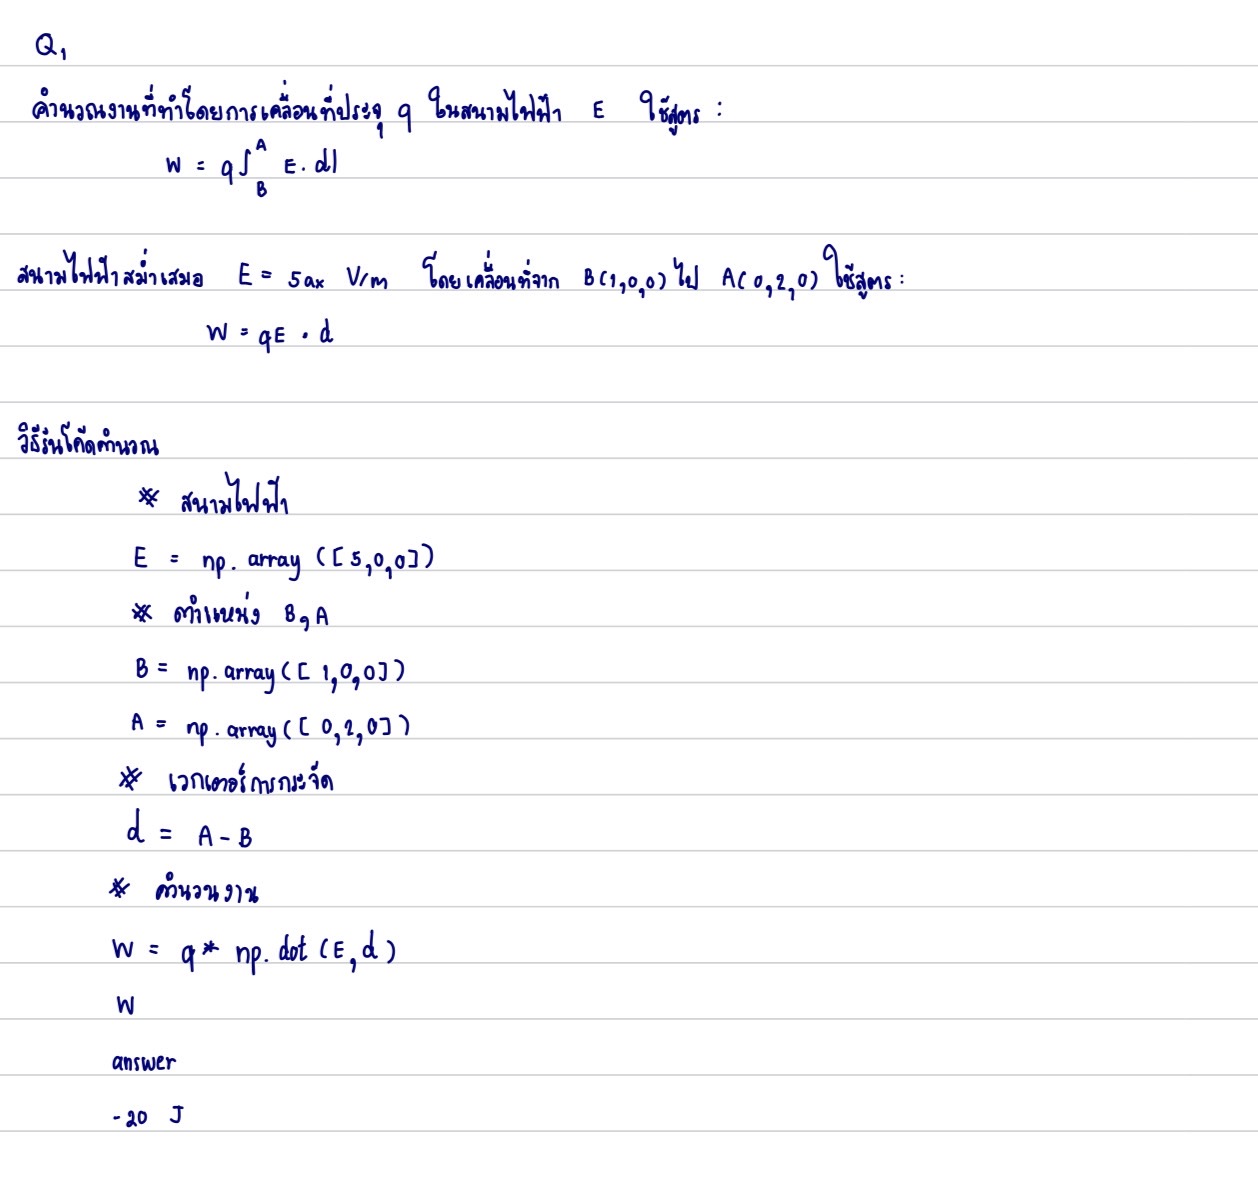 Q1
คำนวณงานที่ทำโดยการเคลื่อนที่ประจุ q ในสนามไฟฟ้า E ใช้สูตร :
W = q∫_B^A E · dl
สนามไฟฟ้าสม่ำเสมอ E = 5ax V/m โดยเคลื่อนที่จาก B(1,0,0) ไป A(0,2,0) ใช้สูตร :
W = qE · d
วิธีรันโค้ดคำนวณ
# สนามไฟฟ้า
E = np.array([5,0,0])
# ตำแหน่ง B,A
B = np.array([1,0,0])
A = np.array([0,2,0])
# เวกเตอร์การกระจัด
d = A - B
# คำนวนงาน
W = q* np.dot(E,d)
W
answer
-20 J